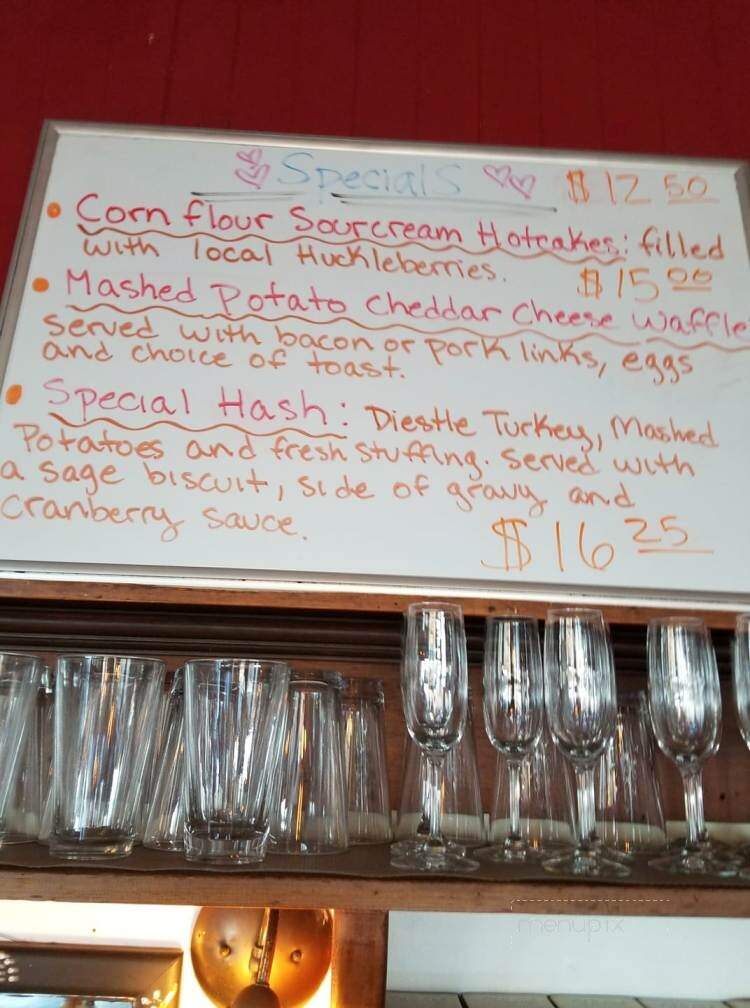 Specials $12 50
• Corn flour Sourcream Hotcakes: filled
with local Huckleberries. $15 00
• Mashed Potato Cheddar Cheese Waffle
Served with bacon or pork links, eggs
and choice of toast.
• Special Hash: Diestle Turkey, Mashed
Potatoes and fresh stuffing. Served with
a sage biscuit, side of gravy and
cranberry sauce.
$16 25
menupix